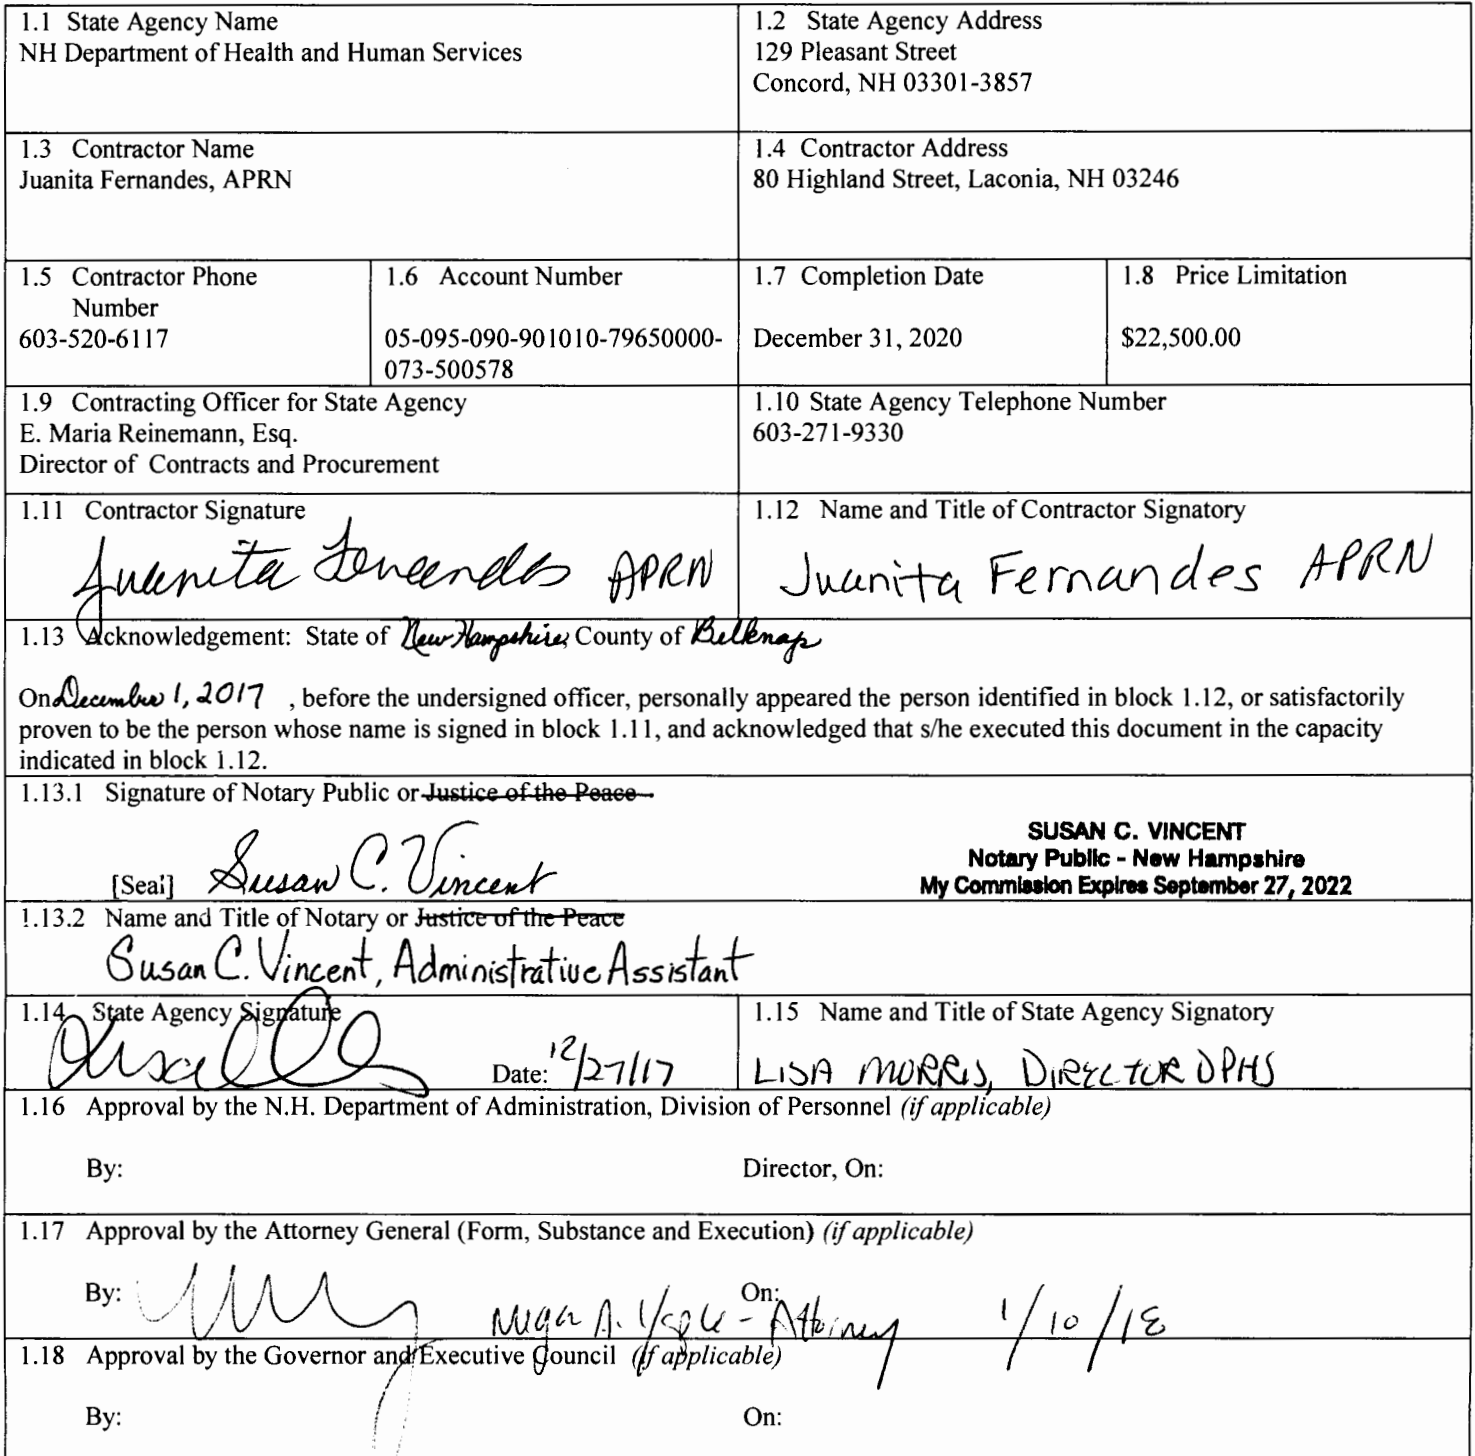 1.1 State Agency Name
NH Department of Health and Human Services
1.2 State Agency Address
129 Pleasant Street
Concord, NH 03301-3857
1.3 Contractor Name
Juanita Fernandes, APRN
1.4 Contractor Address
80 Highland Street, Laconia, NH 03246
1.5 Contractor Phone
Number
603-520-6117
1.6 Account Number
05-095-090-901010-79650000-
073-500578
1.7 Completion Date
December 31, 2020
1.8 Price Limitation
$22,500.00
1.9 Contracting Officer for State Agency
E. Maria Reinemann, Esq.
Director of Contracts and Procurement
1.10 State Agency Telephone Number
603-271-9330
1.11 Contractor Signature
Juanita Fernandes APRN
1.12 Name and Title of Contractor Signatory
Juanita Fernandes APRN
1.13 Acknowledgement: State of New Hampshire, County of Belknap
On December 1, 2017 , before the undersigned officer, personally appeared the person identified in block 1.12, or satisfactorily
proven to be the person whose name is signed in block 1.11, and acknowledged that s/he executed this document in the capacity
indicated in block 1.12.
1.13.1 Signature of Notary Public or Justice of the Peace
[Seal] Susan C. Vincent
SUSAN C. VINCENT
Notary Public - New Hampshire
My Commission Expires September 27, 2022
1.13.2 Name and Title of Notary or Justice of the Peace
Susan C. Vincent, Administrative Assistant
1.14 State Agency Signature
Date: 12/27/17
1.15 Name and Title of State Agency Signatory
LISA MORRIS, DIRECTOR DPHS
1.16 Approval by the N.H. Department of Administration, Division of Personnel (if applicable)
By:
Director, On:
1.17 Approval by the Attorney General (Form, Substance and Execution) (if applicable)
By: A. - Attorney On: 1/10/18
1.18 Approval by the Governor and Executive Council (if applicable)
By:
On: